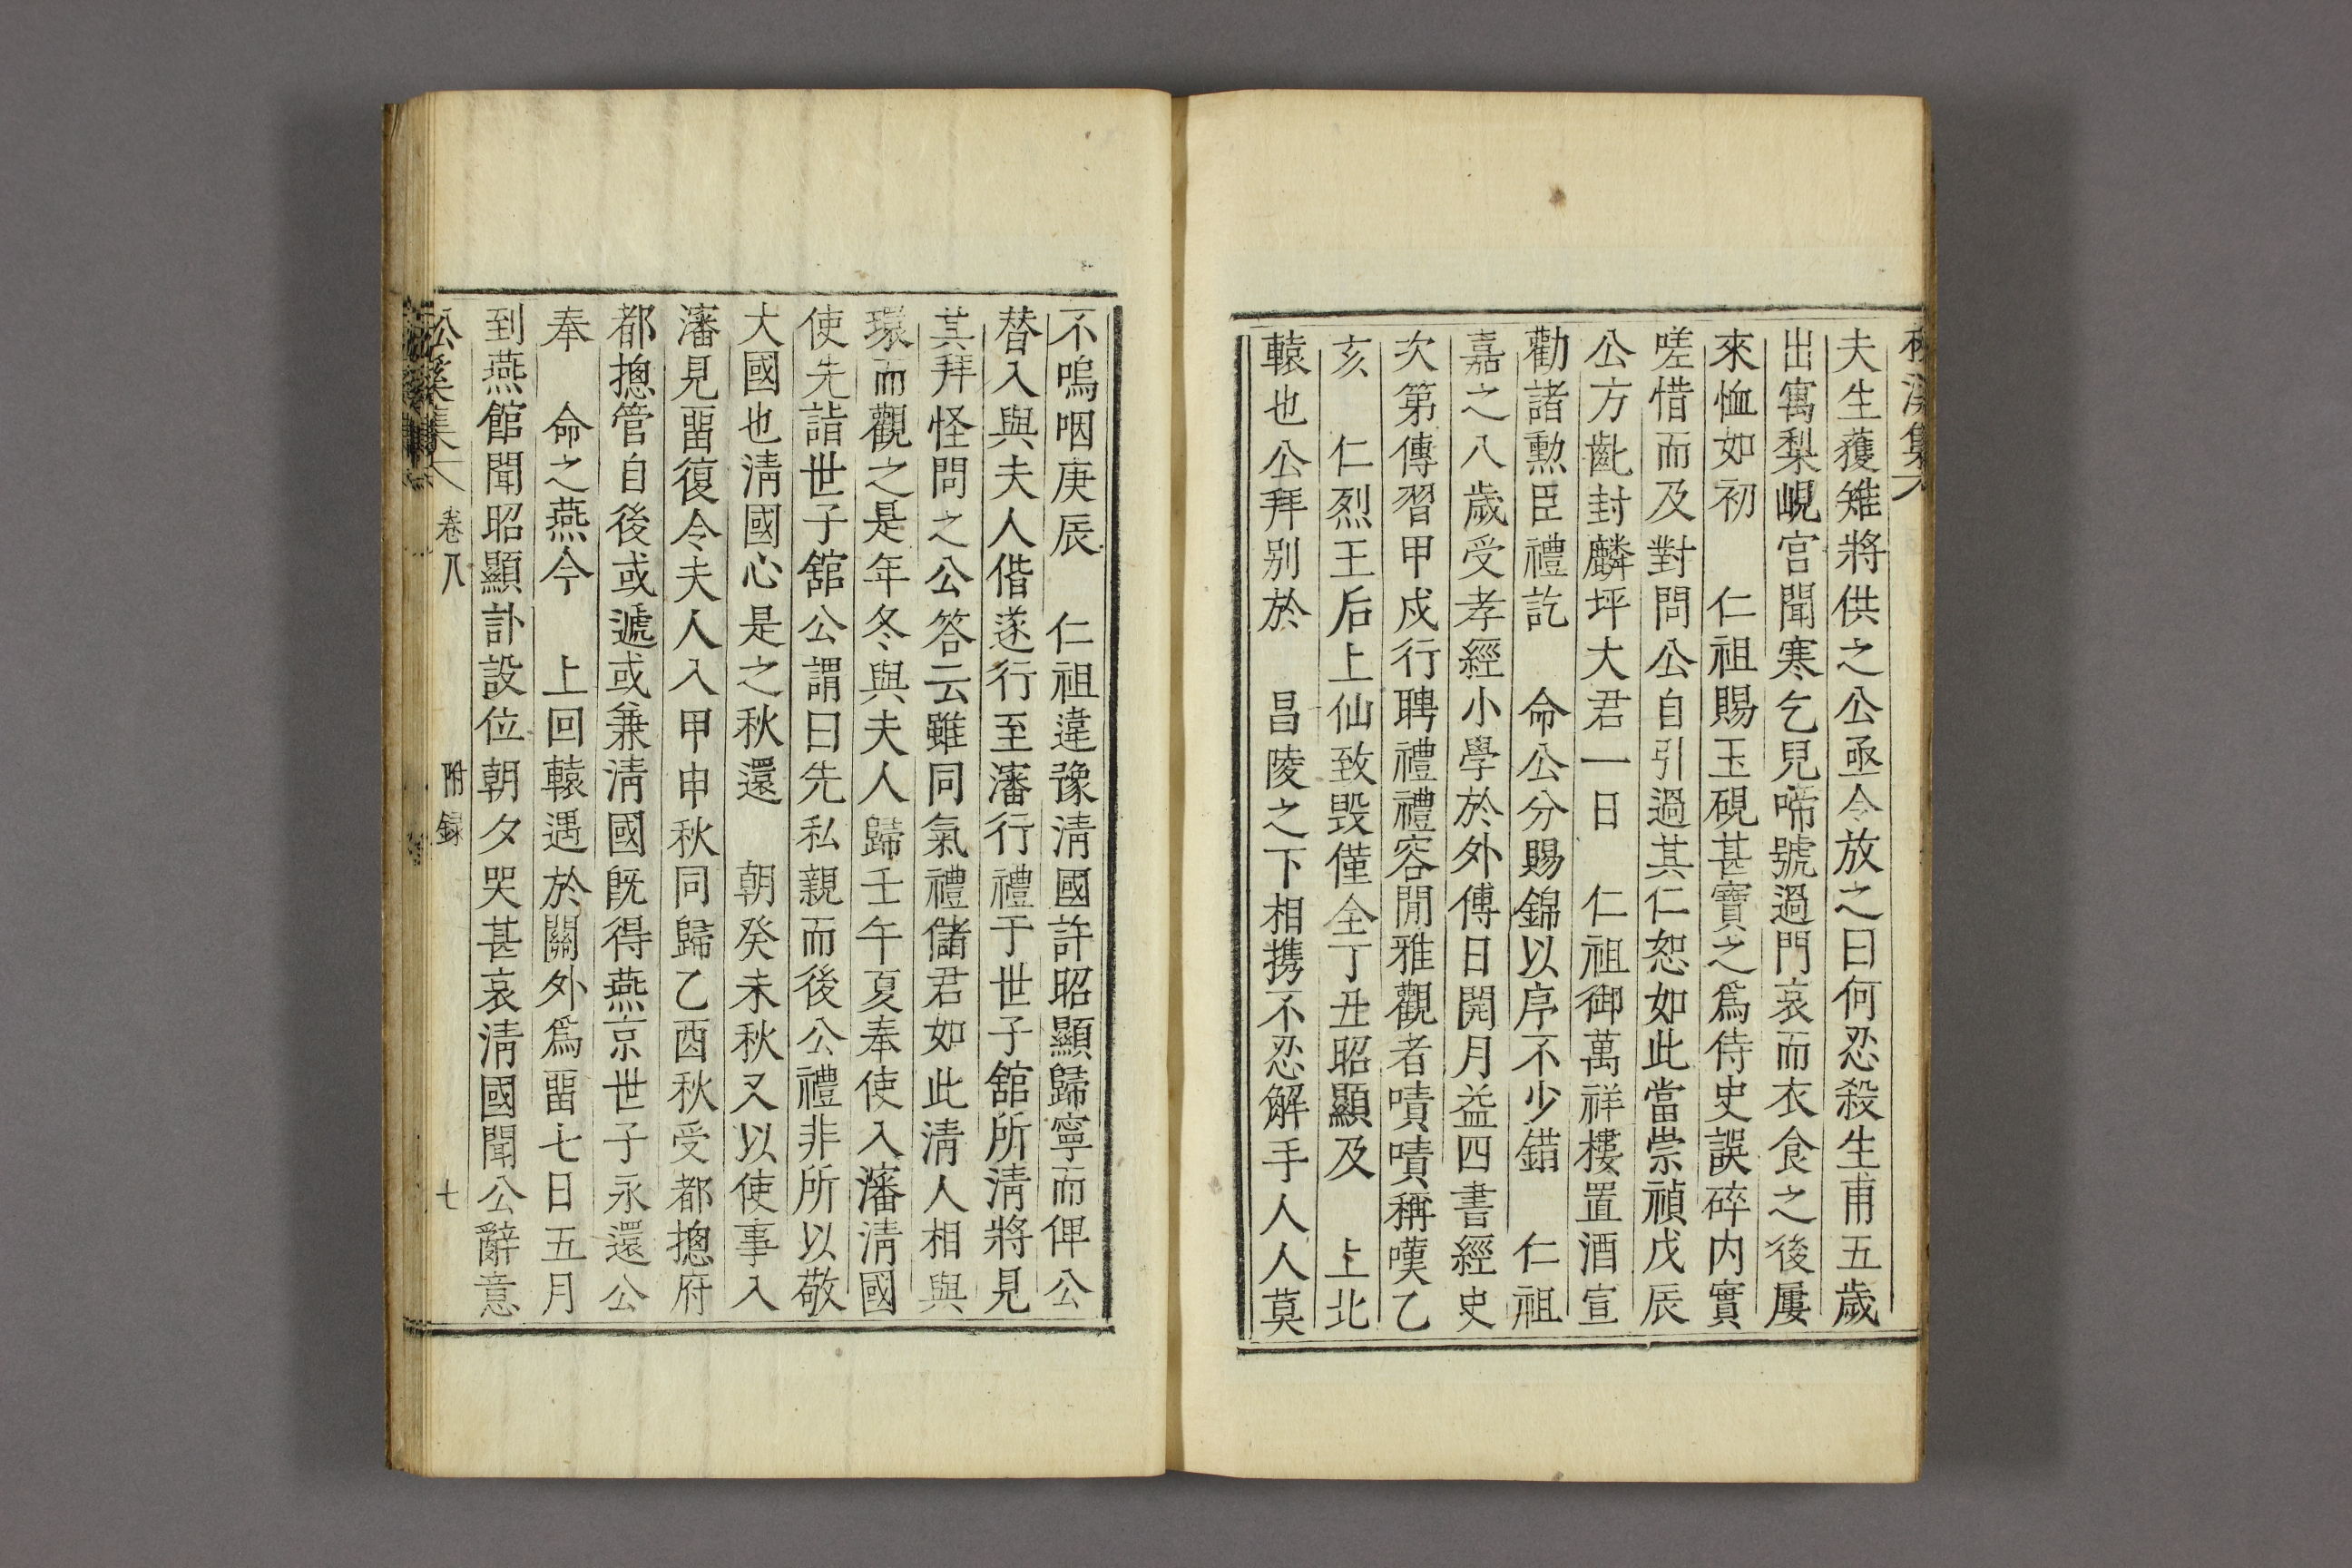 夫生獲雉將供之公亟令放之曰何忍殺生甫五歲
出寓梨峴宮聞寒乞兒啼號過門哀而衣食之後屢
來恤如初 仁祖賜玉硯甚寶之爲侍史誤碎内實
嗟惜而及對問公自引過其仁恕如此當崇禎戊辰
公方齔封麟坪大君一日 仁祖御萬祥樓置酒宣
勸諸勲臣禮訖 命公分賜錦以序不少錯 仁祖
嘉之八歲受孝經小學於外傅日開月益四書經史
次第傳習甲戌行聘禮禮容閒雅觀者嘖嘖稱嘆乙
亥 仁烈王后上仙致毁僅全丁丑昭顯及 上北
轅也公拜别於 昌陵之下相携不忍解手人人莫
不嗚咽庚辰 仁祖違豫淸國許昭顯歸寧而俾公
替入與夫人偕遂行至瀋行禮于世子舘所淸將見
其拜怪問之公答云雖同氣禮儲君如此淸人相與
環而觀之是年冬與夫人歸壬午夏奉使入瀋淸國
使先詣世子舘公謂曰先私親而後公禮非所以敬
大國也淸國心是之秋還 朝癸未秋又以使事入
瀋見留復令夫人入甲申秋同歸乙酉秋受都摠府
都摠管自後或遞或兼淸國旣得燕京世子永還公
奉 命之燕今 上回轅遇於關外爲留七日五月
到燕館聞昭顯訃設位朝夕哭甚哀淸國聞公辭意
卷八 附録 七